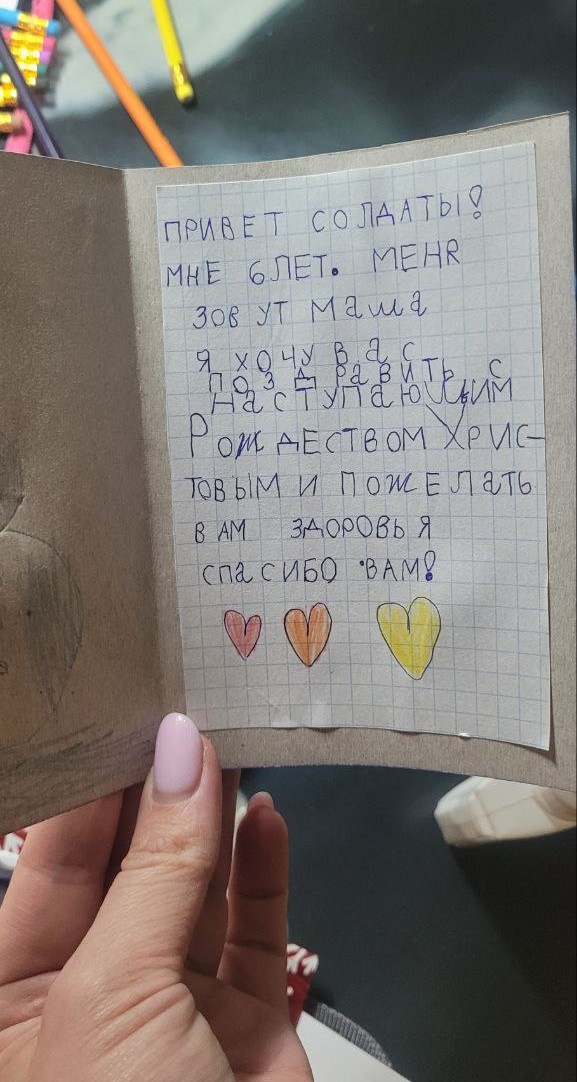 ПРИВЕТ СОЛДАТЫ!
МНЕ 6 ЛЕТ. МЕНЯ
ЗОВУТ Маша
Я ХОЧУ ВАС
ПОЗДРАВИТЬ С
НаСТУПаЮЩИМ
РОЖДЕСТВОМ ХРИС-
ТОВЫМ И ПОЖЕЛАТЬ
ВАМ ЗДОРОВЬЯ
СПаСИБО ВАМ!